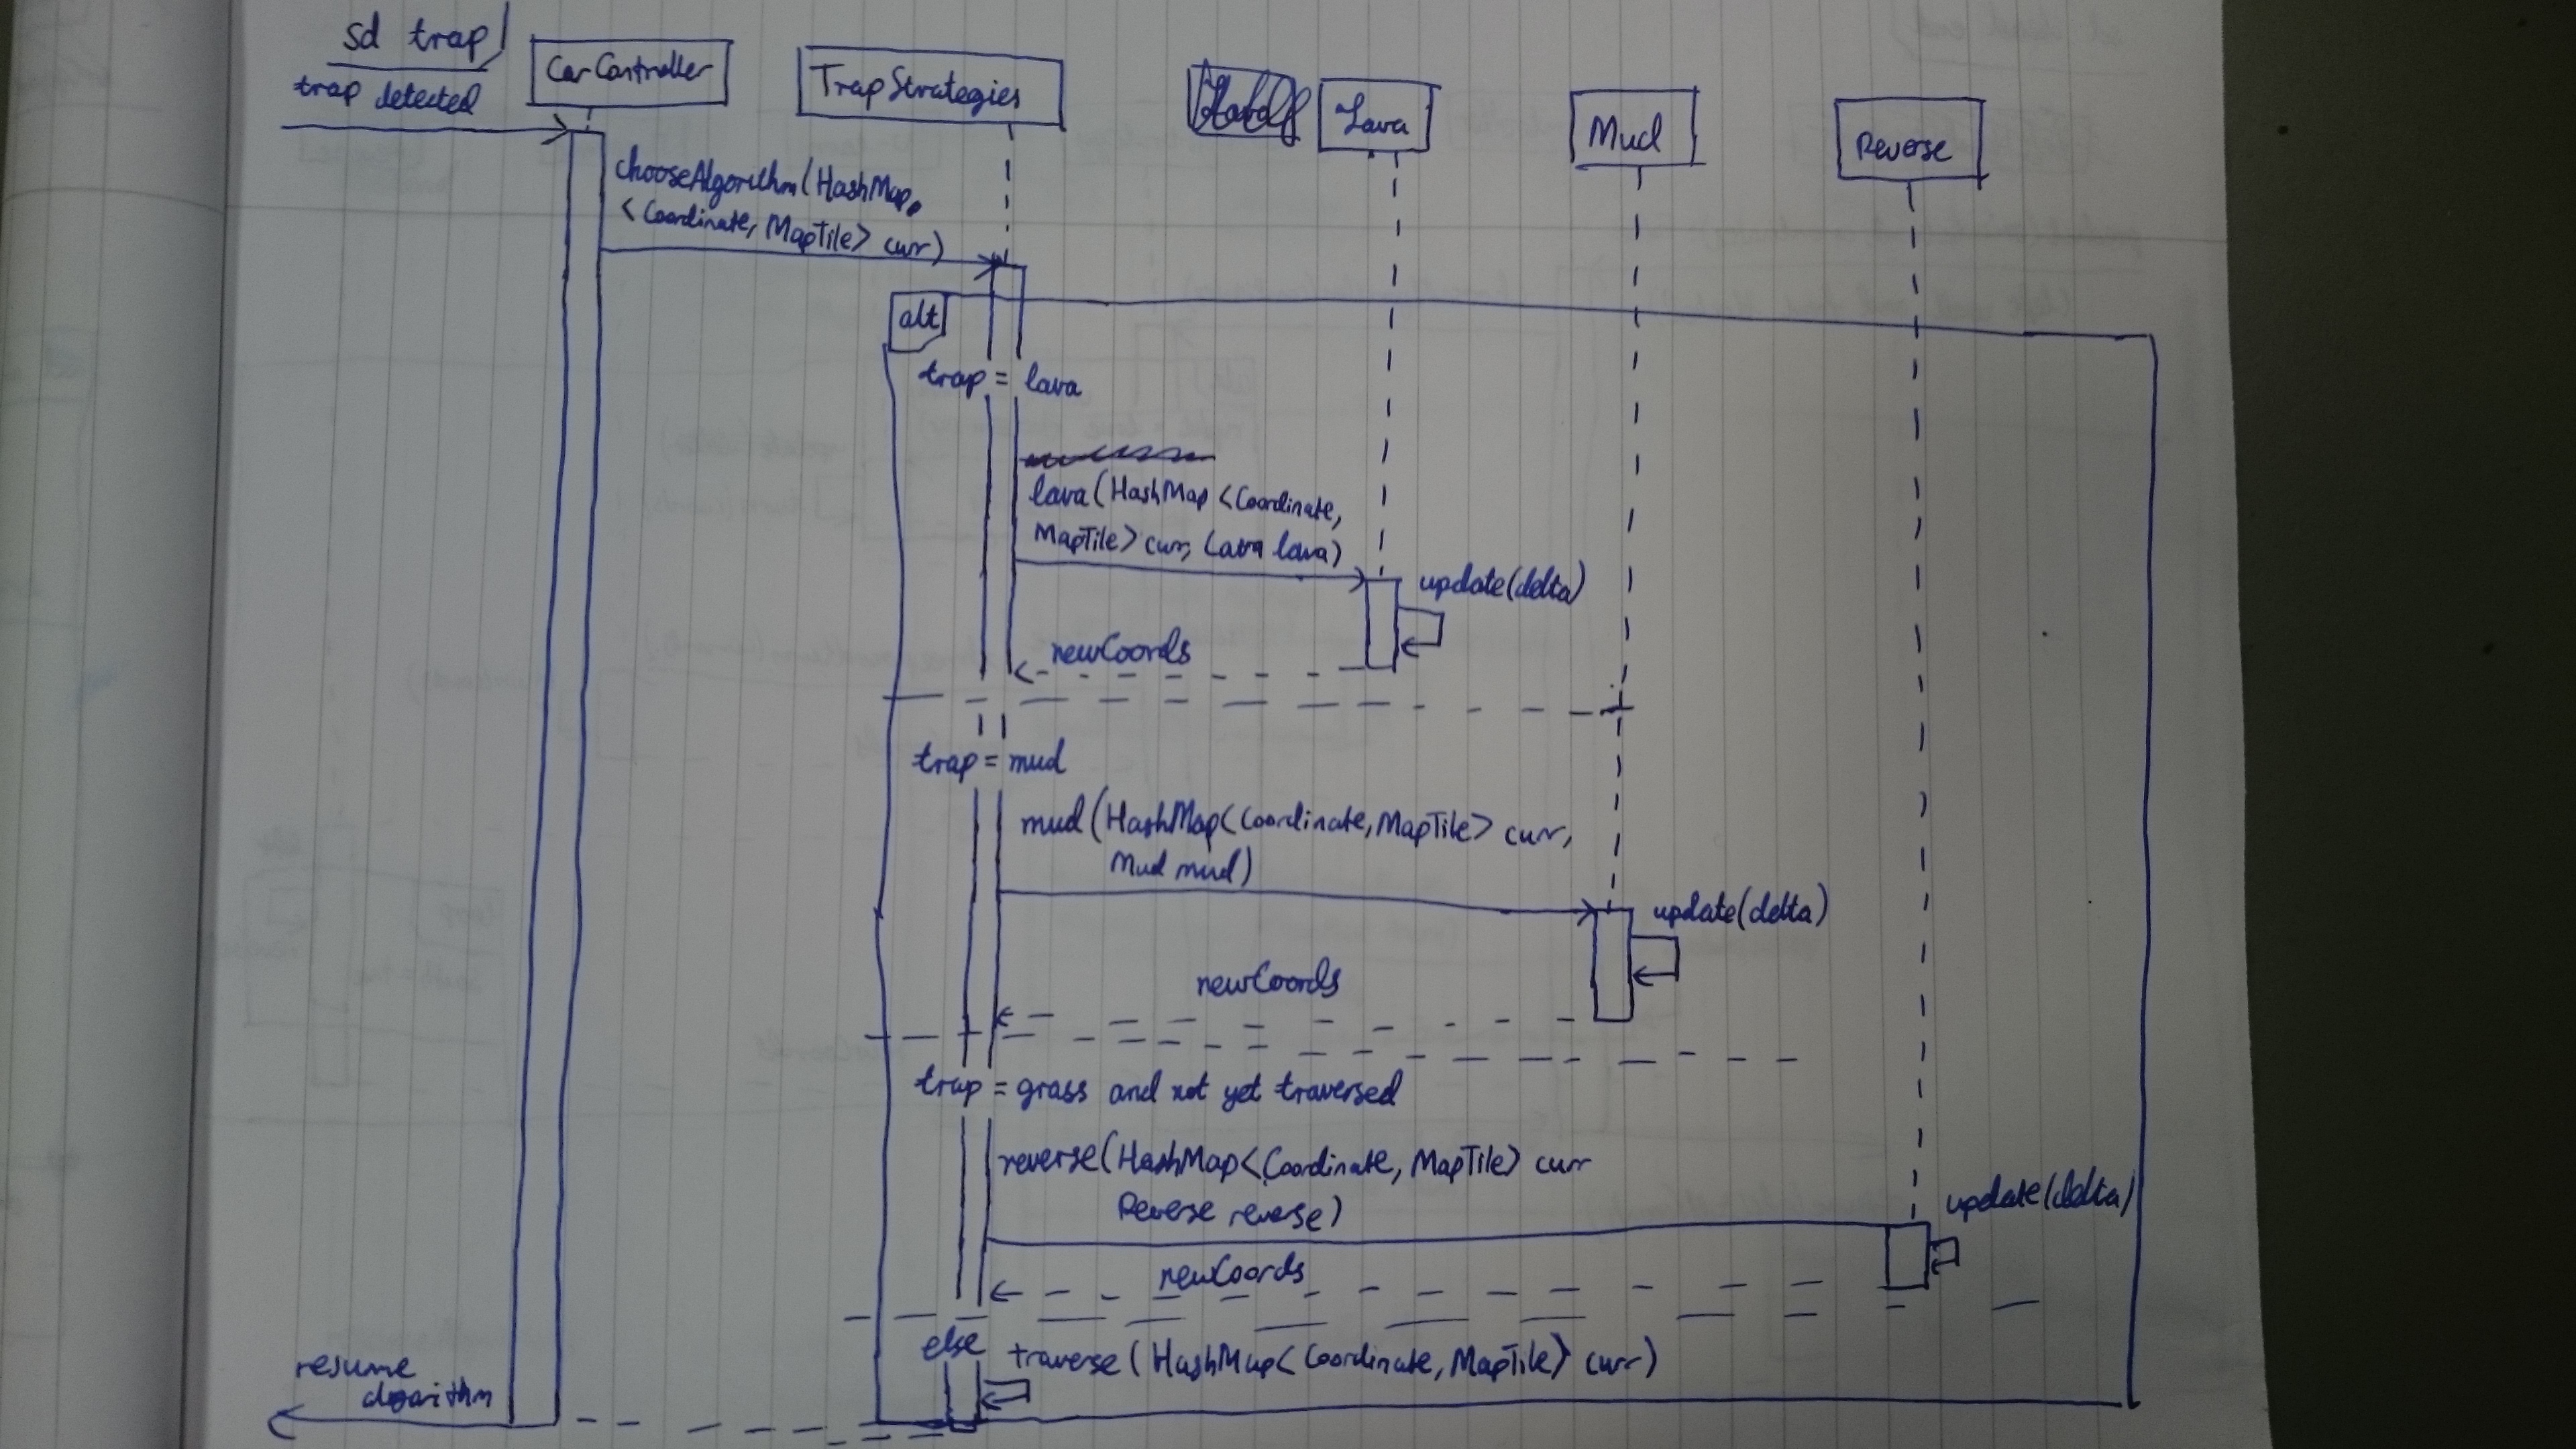 sd trap
trap detected
CarController
TrapStrategies
Lava
Mud
Reverse
chooseAlgorithm(HashMap
<Coordinate, MapTile> curr)
alt
trap = lava
lava(HashMap<Coordinate,
MapTile> curr, Lava lava)
update(delta)
newCoords
trap = mud
mud(HashMap<Coordinate, MapTile> curr,
Mud mud)
update(delta)
newCoords
trap = grass and not yet traversed
reverse(HashMap<Coordinate, MapTile> curr
Reverse reverse)
update(delta)
newCoords
else
traverse(HashMap<Coordinate, MapTile> curr)
resume
algorithm